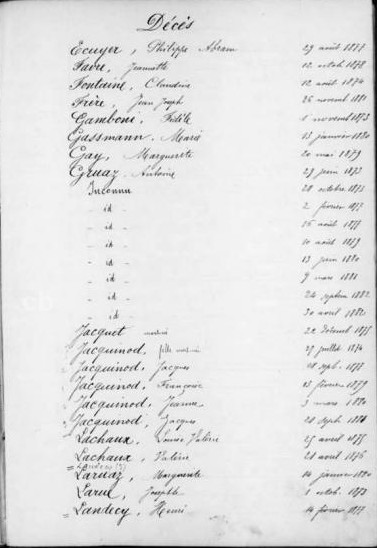 Décès
Ecuyer, Philippe Abram 29 août 1877
Favre, Jeannette 12 octob 1878
Fontaine, Claudine 12 août 1874
Frère, Jean Joseph 26 novemb 1881
Gamboni, Fidèle 1 novemb 1873
Gassmann, Marie 13 janvier 1880
Gay, Marguerite 20 mai 1879
Gruaz, Antoine 29 juin 1873
Inconnu 28 octobre
- id - 2 février 1877
- id - août 1877
- id - 10 août 1879
- id - 13 juin 1880
- id - 9 mars 1881
- id - 24 septem 1882
- id - 30 avril 1882
Jacquet 22
Jacquinod, fille 29 juillet 1874
Jacquinod, Jacques sept. 1877
Jacquinod, Françoise 13 février 1879
Jacquinod, Jeanne 3 mars 1880
Jacquinod, Jacques 28 sept. 1881
Lachaux, Louise Valérie 25 avril 1875
Lachaux, Valérie 28 avril 1876
Laruaz, Marguerite 14 janvier 1880
Larue, Josephte 1 octob. 1873
Landecy, Henri 14 février 1877